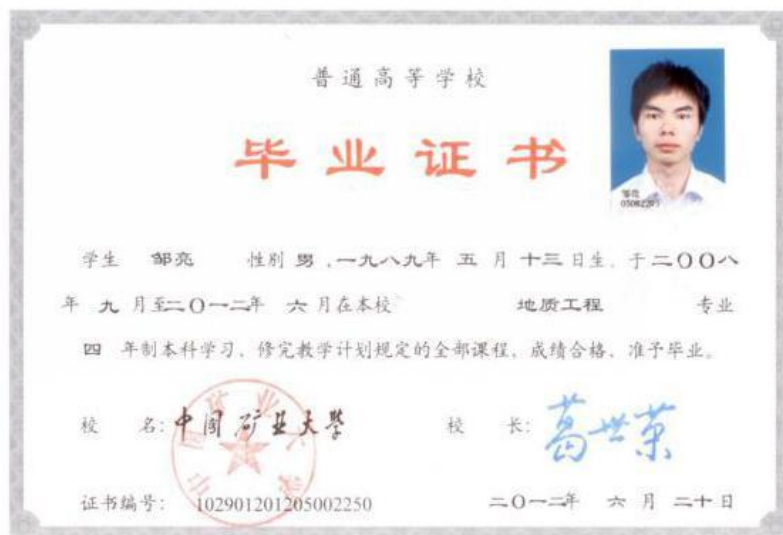 普通高等学校
毕业证书
邹亮
学生 邹亮 性别 男 ,一九八九年 五 月 十三 日生, 于 二〇〇八
年 九 月至二〇一二年 六 月在本校 地质工程 专业
四 年制本科学习, 修完教学计划规定的全部课程, 成绩合格, 准予毕业。
校 名: 中国矿业大学 校 长: 葛世荣
证书编号: 102901201205002250 二〇一二年 六 月 二十 日